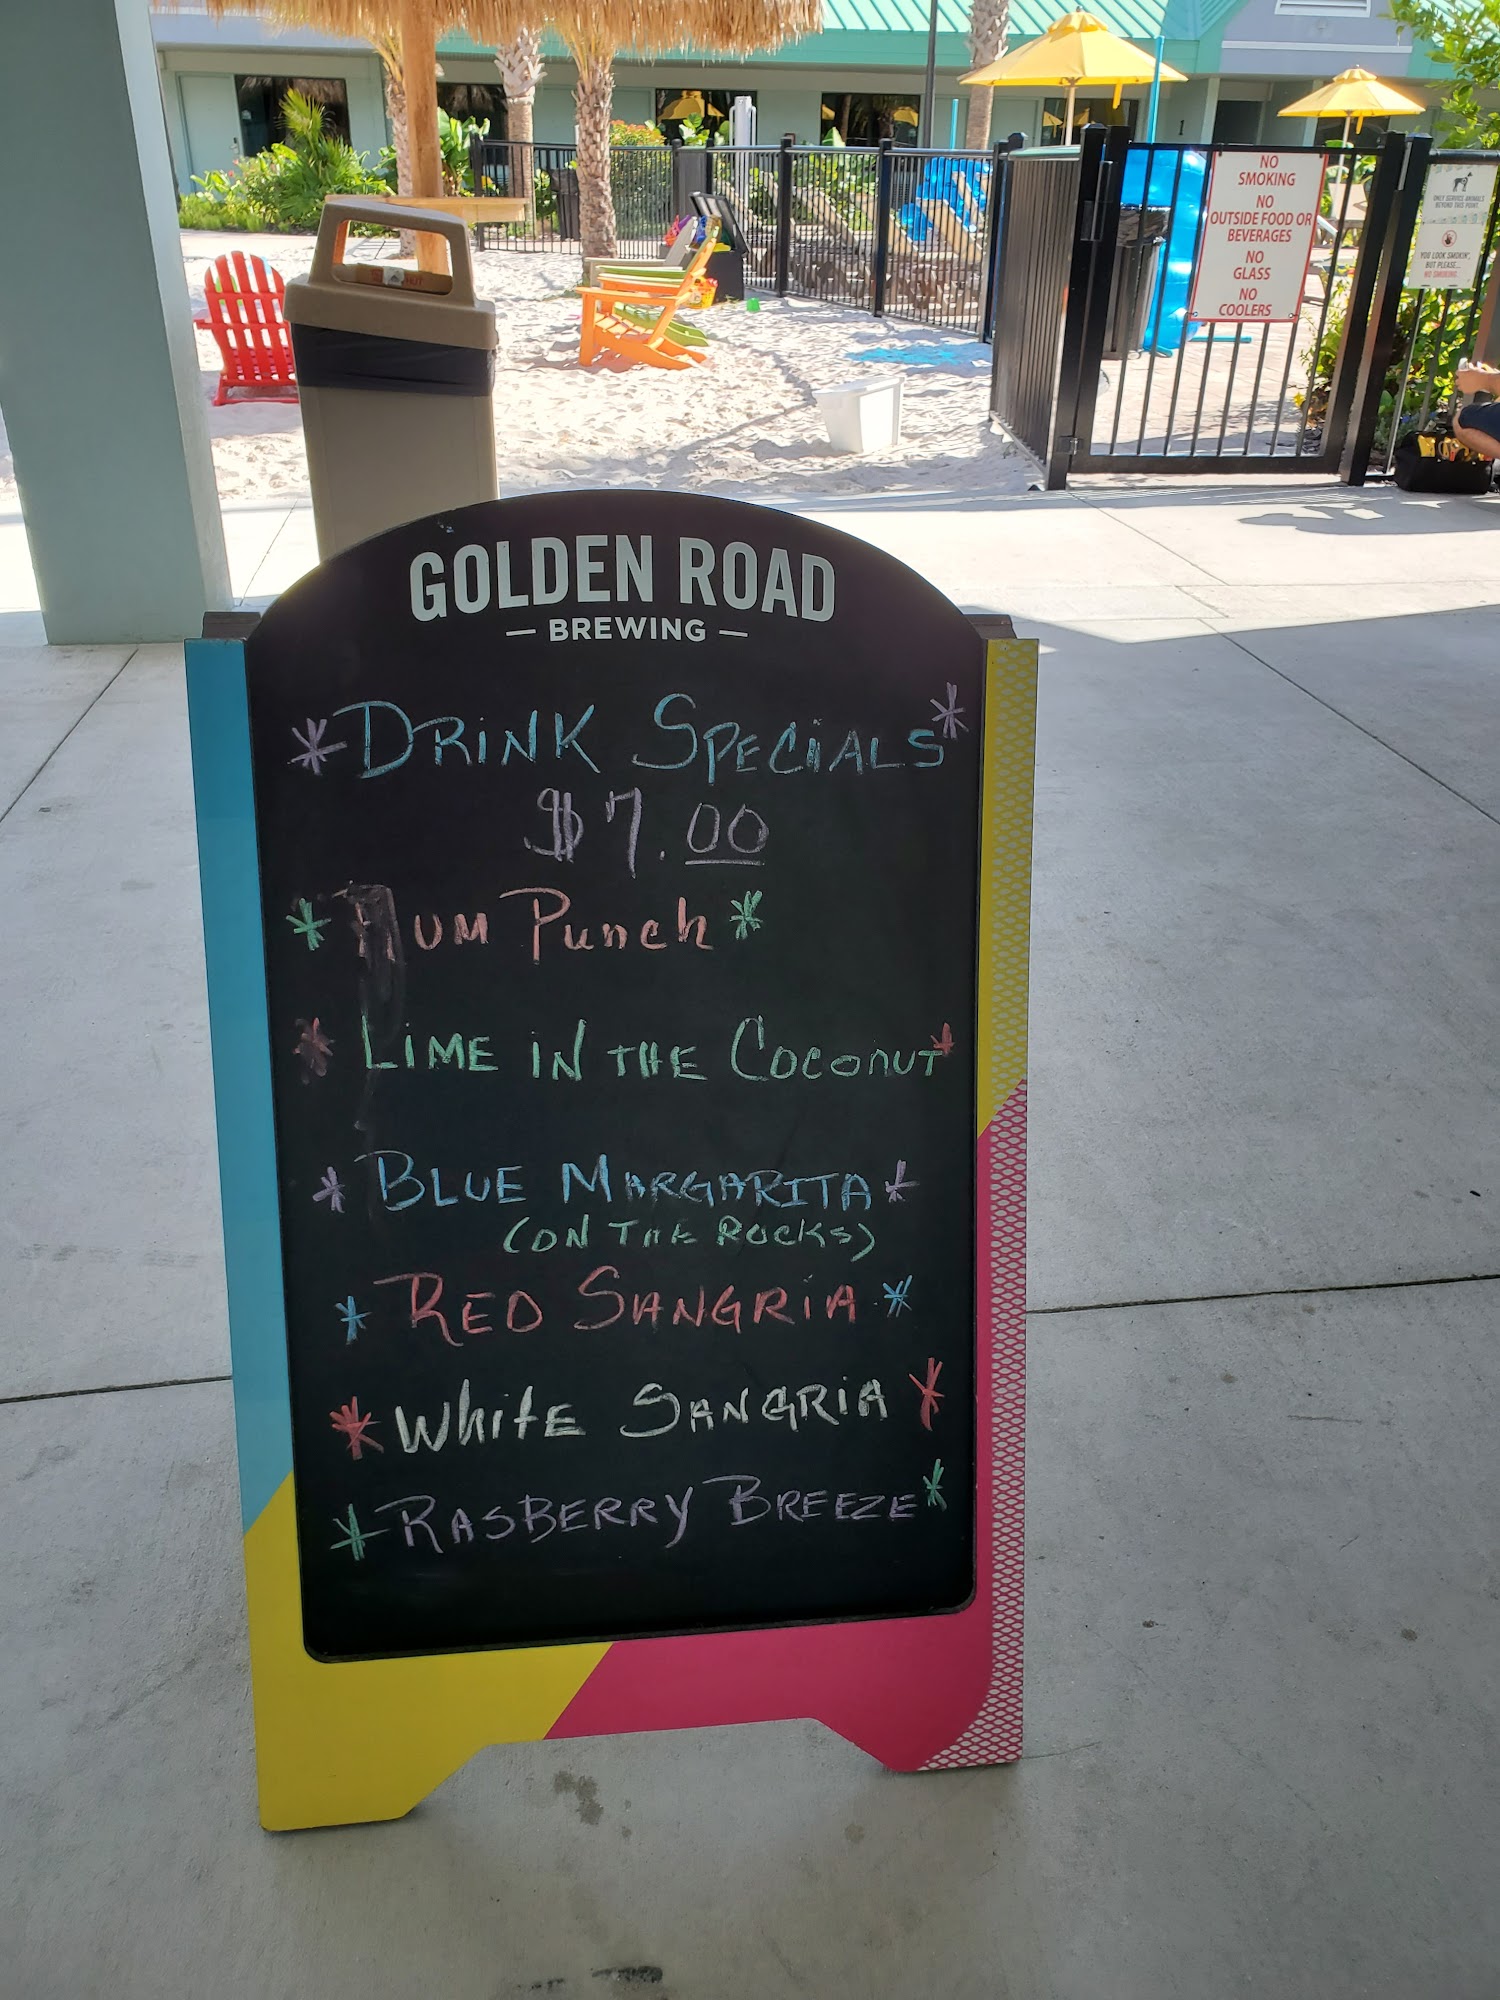 1
NO
SMOKING
NO
OUTSIDE FOOD OR
BEVERAGES
NO
GLASS
NO
COOLERS
ONLY SERVICE ANIMALS
BEYOND THIS POINT
YOU LOOK SMOKIN',
BUT PLEASE...
NO SMOKING
GOLDEN ROAD
— BREWING —
*DRiNK SPECiALS*
$7.00
*RUM Punch*
*LiME iN THE COCOnUT*
*BLUE MARGARITA*
(ON THE ROCKS)
*RED SANGRiA*
*WhitE SANGRiA*
*RASBERRY BREEZE*